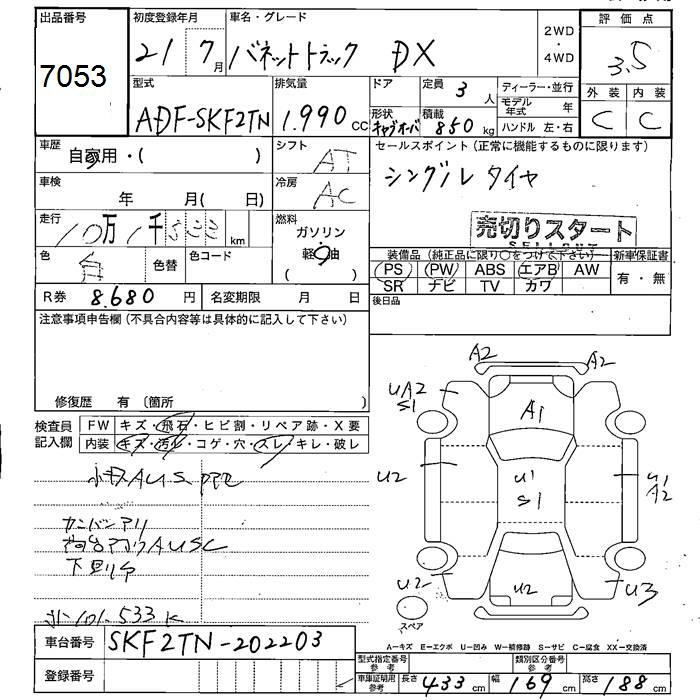 出品番号
7053
初度登録年月
21 7月
車名・グレード
バネットトラック DX
2WD
・
4WD
評価点
3.5
外装 内装
C C
型式
ADF-SKF2TN
排気量
1.990 cc
ドア
定員 3 人
形状 キャブオーバ
積載 850 kg
ディーラー・並行
モデル年式 年
ハンドル 左・右
車歴
自家用・( )
シフト
AT
セールスポイント(正常に機能するものに限ります)
シングルタイヤ
車検
年 月( 日)
冷房
AC
売切りスタート
走行
10万1千533 km
燃料
ガソリン
軽油
色
白
色替
色コード
装備品(純正品に限り○をつけて下さい)
新車保証書
PS PW ABS エアB AW
SR ナビ TV カワ
有・無
R券 8.680 円
名変期限 月 日
後日品
注意事項申告欄(不具合内容等は具体的に記入して下さい)
修復歴 有 (箇所 )
検査員記入欄
FW キズ・飛石・ヒビ割・リペア跡・X要
内装 キズ・汚れ・コゲ・穴・スレ・キレ・破レ
カンバンアリ
下周りサ
101.533K
A2 A2
UA2
S1
A1
U2
U1
S1
U1
A2
U2
U2
U3
スペア
A-キズ E-エクボ U-凹み W-補修跡 S-サビ C-腐食 XX-交換済
車台番号 SKF2TN-202203
登録番号
型式指定番号 参考
類別区分番号 参考
車庫証明用参考 長さ 433 cm 幅 169 cm 高さ 188 cm